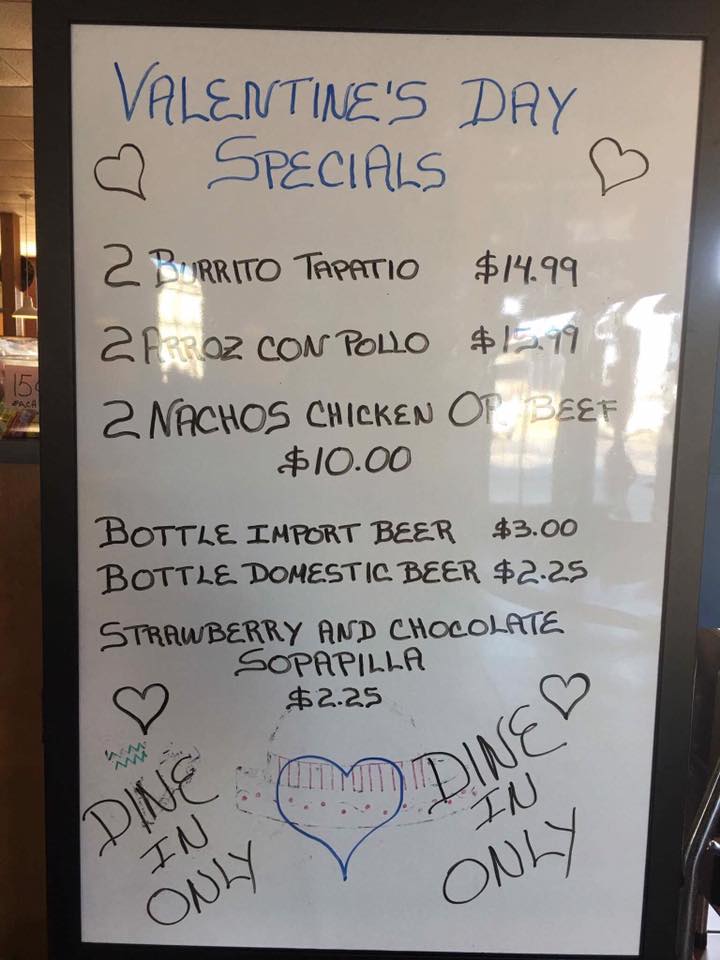 VALENTINE'S DAY
SPECIALS
2 BURRITO TAPATIO $14.99
2 ARROZ CON POLLO $15.99
2 NACHOS CHICKEN OR BEEF
$10.00
BOTTLE IMPORT BEER $3.00
BOTTLE DOMESTIC BEER $2.25
STRAWBERRY AND CHOCOLATE
SOPAPILLA
$2.25
DINE
IN
ONLY
DINE
IN
ONLY
15¢
EACH